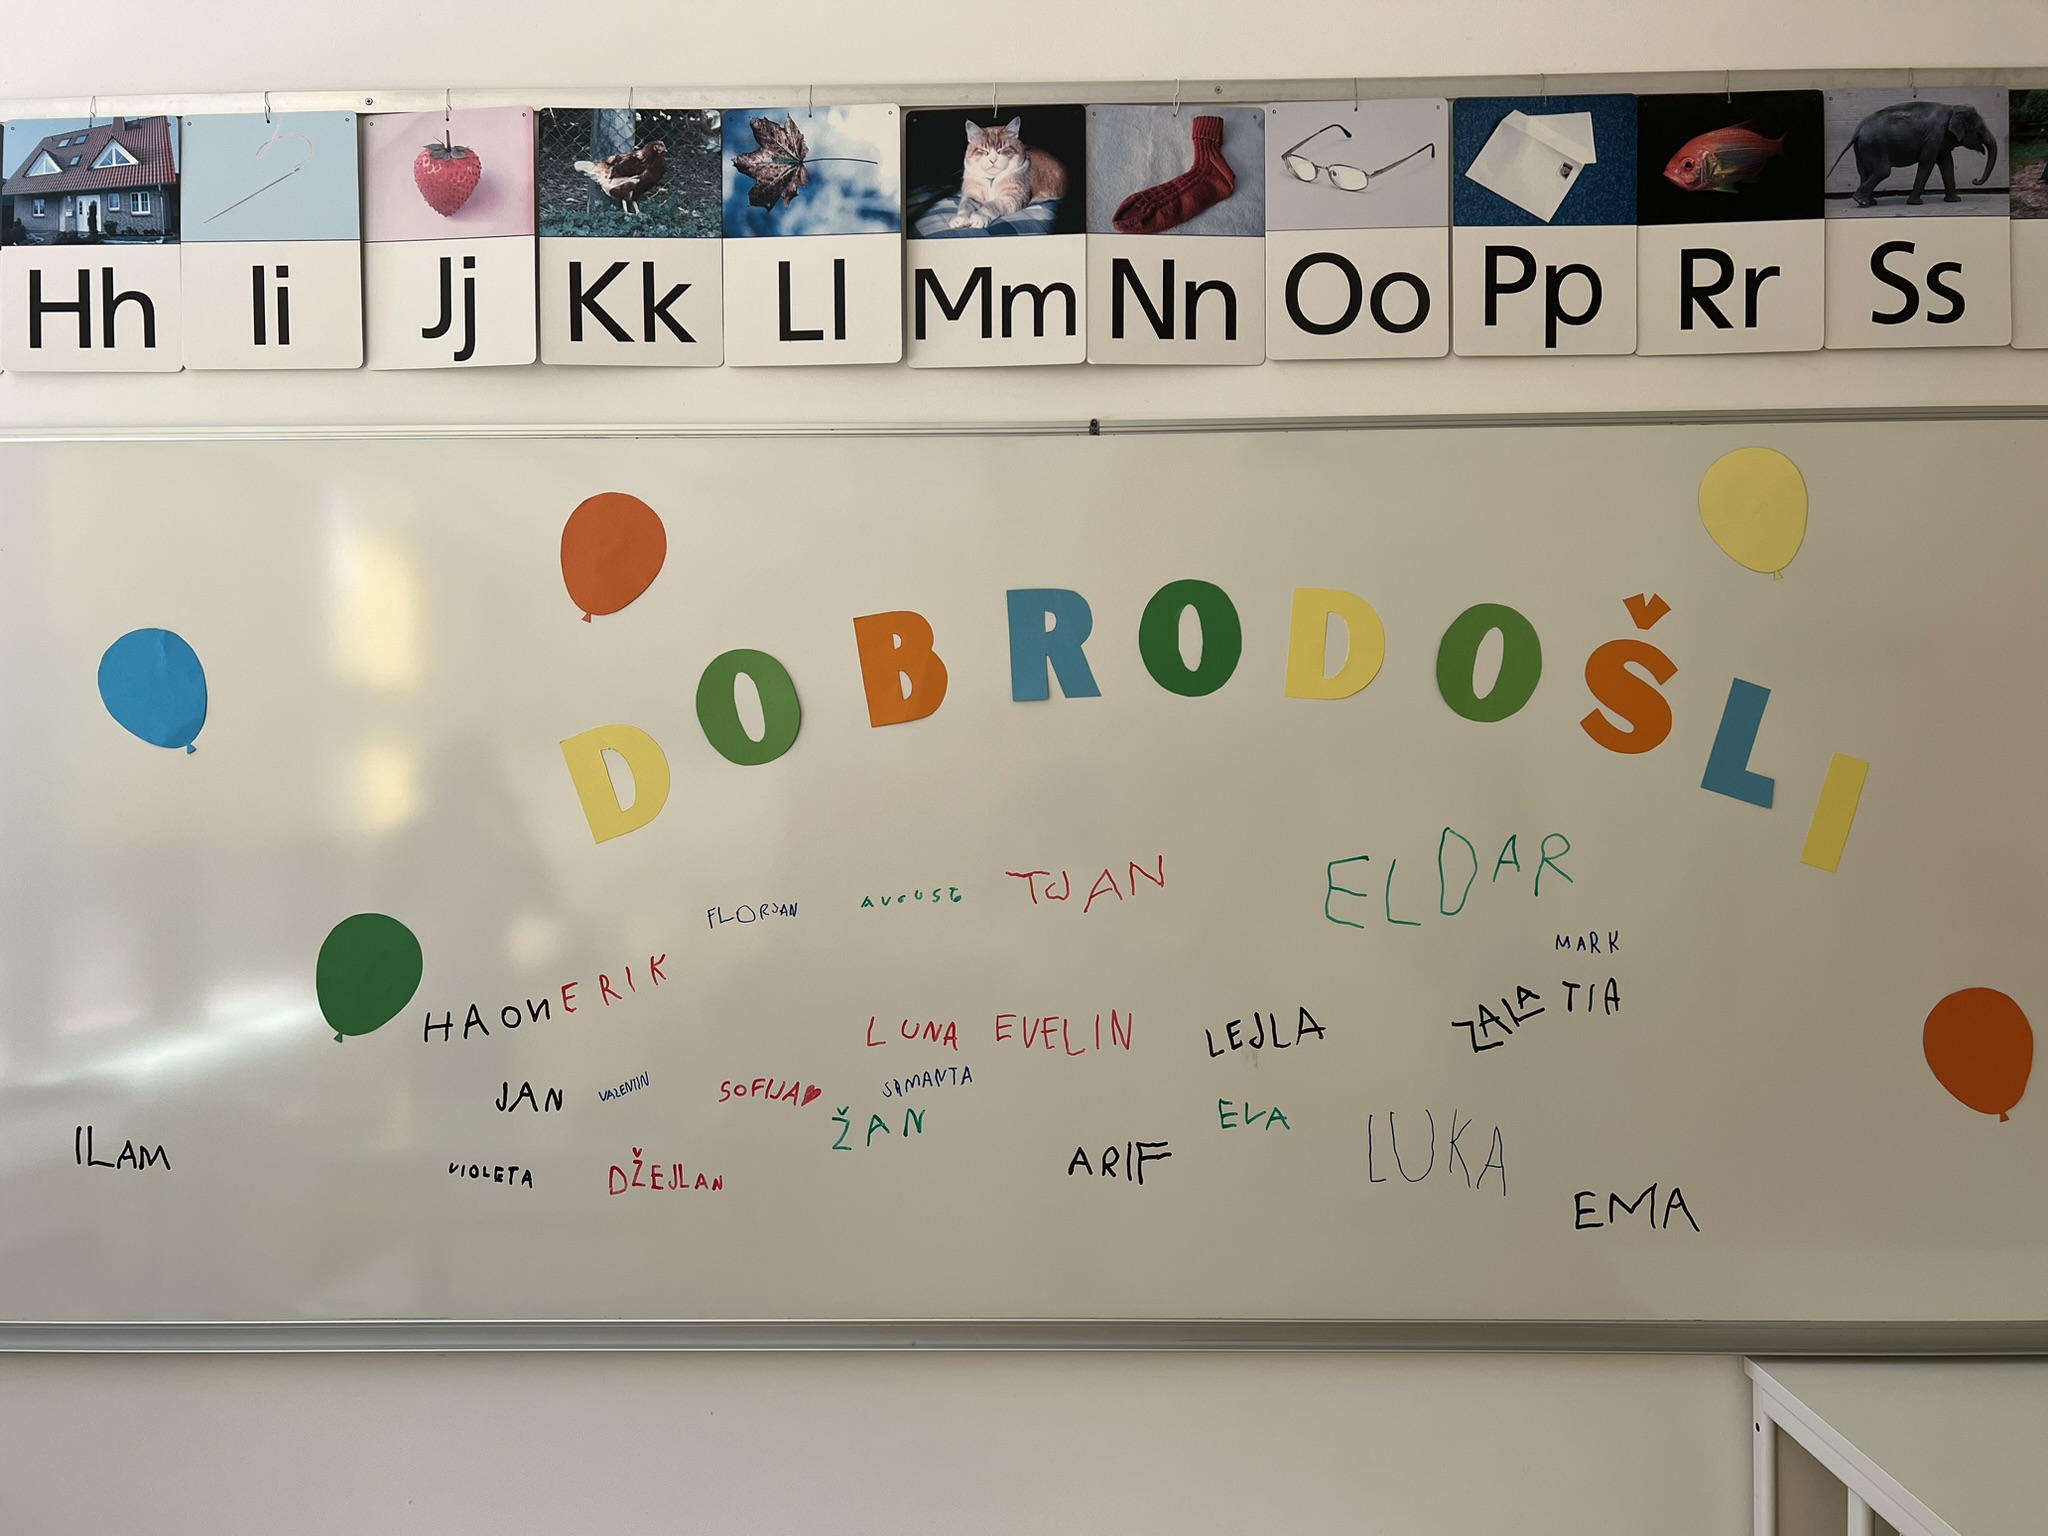 Hh Ii Jj Kk Ll Mm Nn Oo Pp Rr Ss
DOBRODOŠLI
FLORJAN AVGUST TJAN ELDAR
MARK
HAON ERIK LUNA EVELIN LEJLA ZALA TIA
JAN VALENTIN SOFIJA SAMANTA
ŽAN EVA LUKA
ILAM VIOLETA DŽEJLAN ARIF
EMA